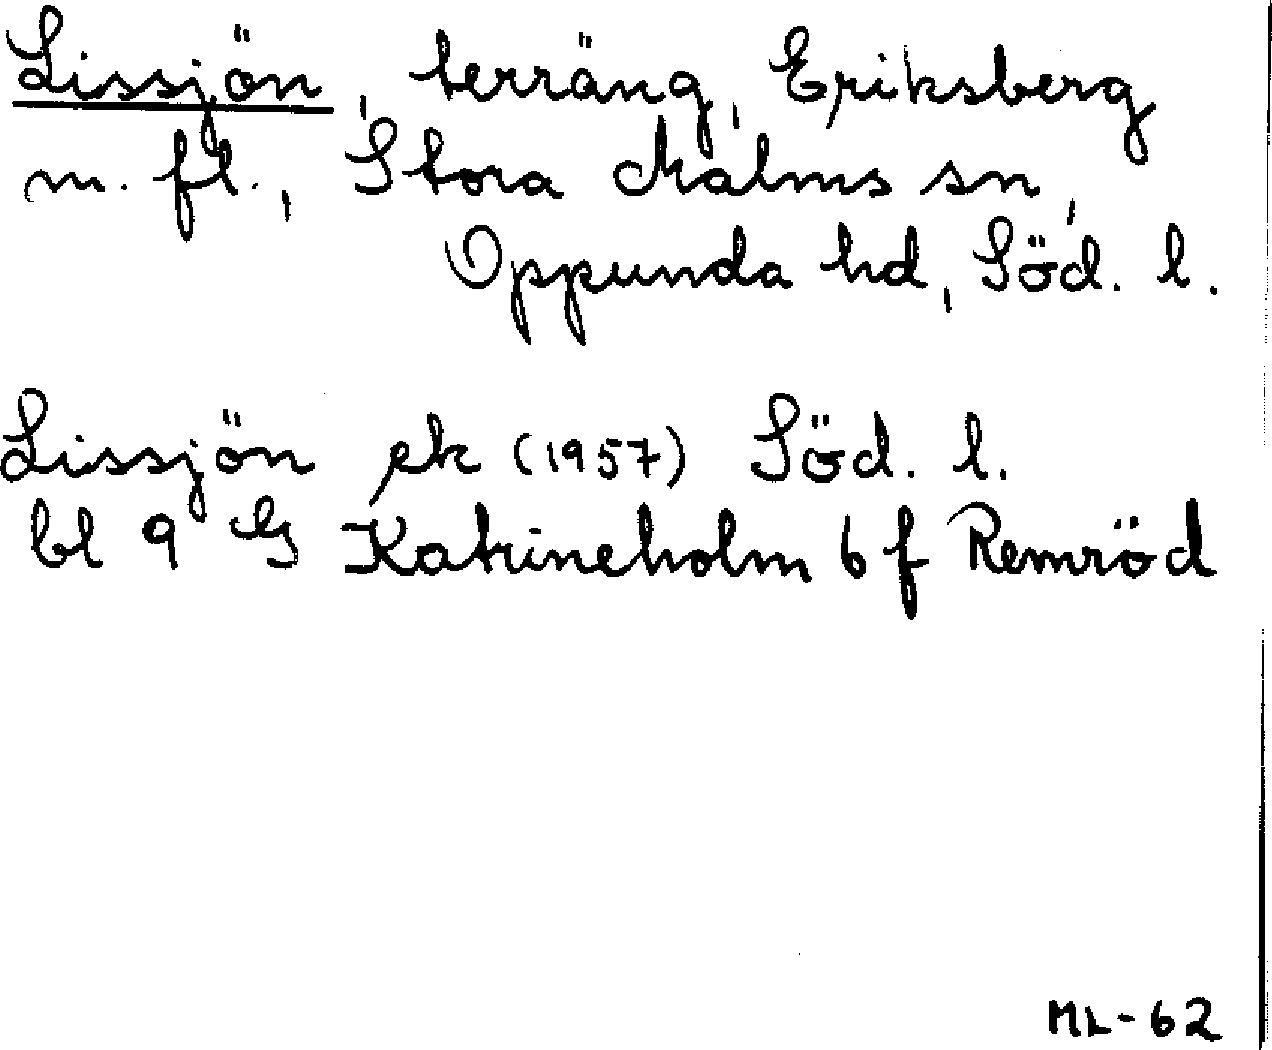 Lissjön, terräng, Eriksberg
m. fl., Stora Malms sn,
Oppunda hd, Söd. l.
Lissjön ek (1957) Söd. l.
bl 9 G Katrineholm 6 f Remröd
ML-62